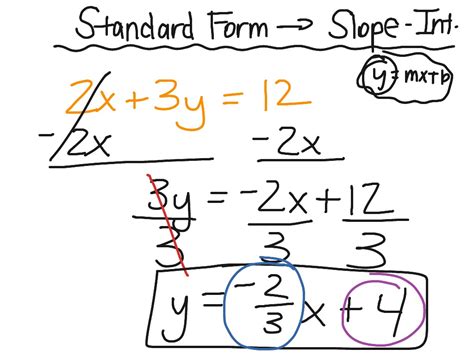 Standard Form → Slope-Int.
y=mx+b
2x+3y=12
-2x -2x
3y = -2x+12
3 3 3
y = -2/3 x + 4